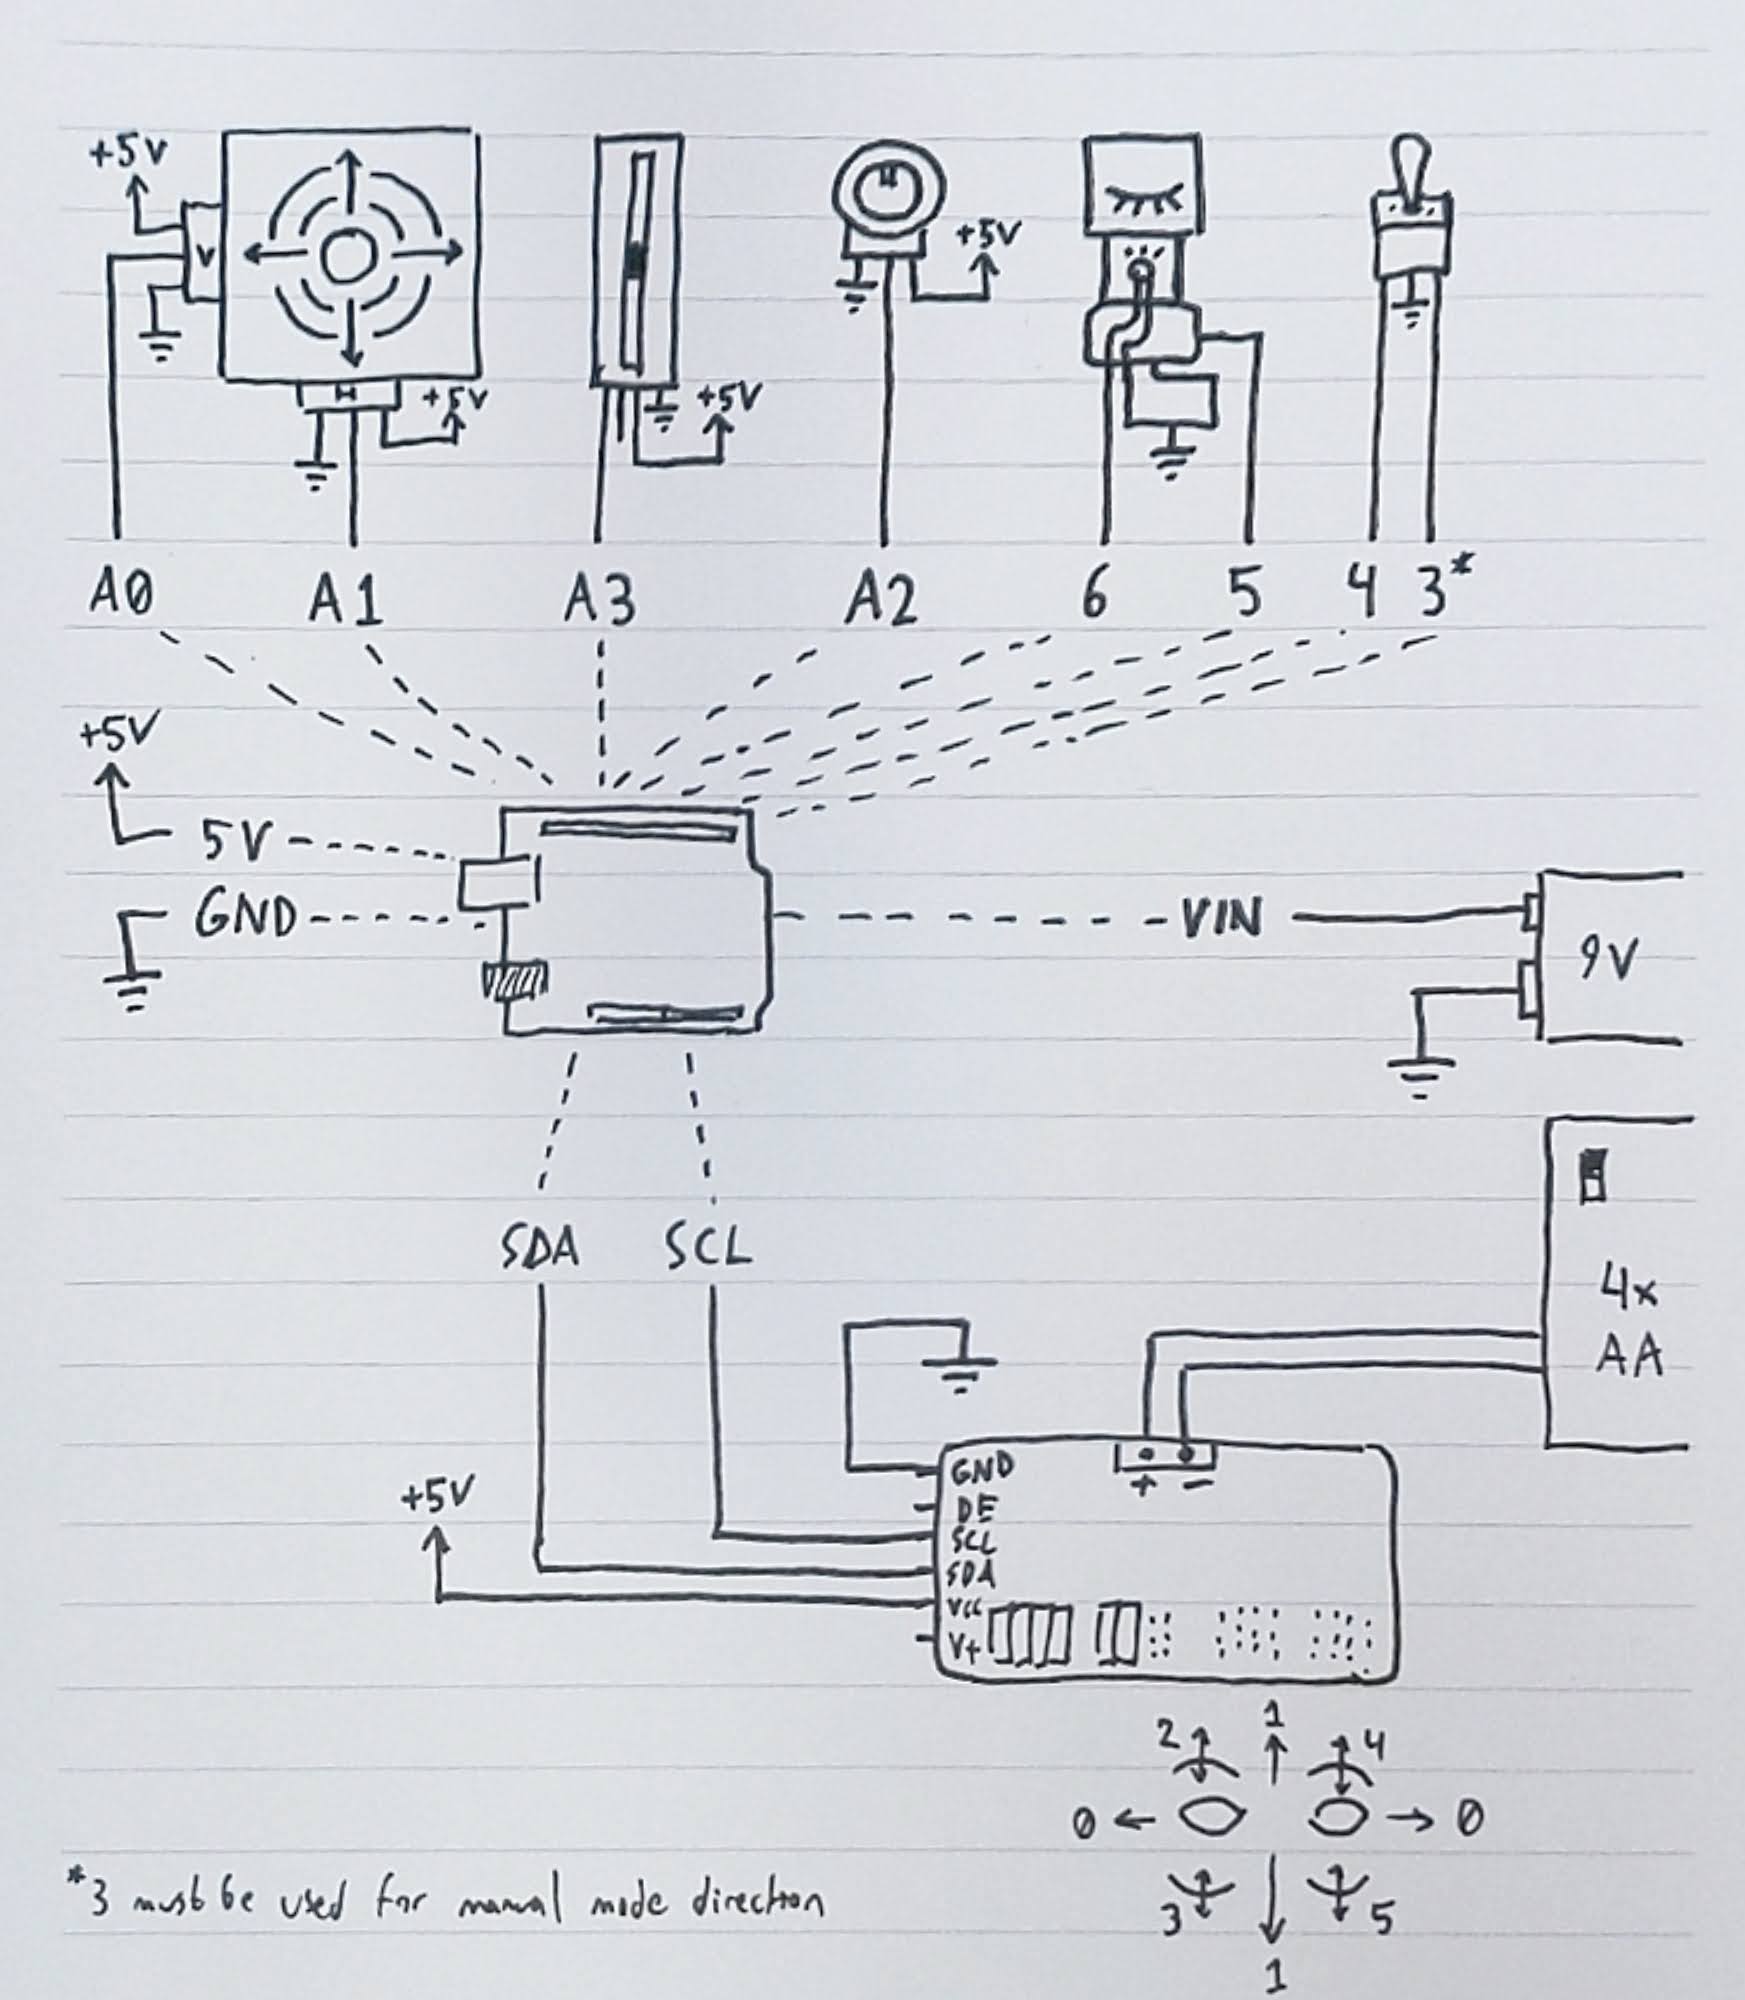 +5V
V
H
+5V
+5V
+5V
A0 A1 A3 A2 6 5 4 3*
+5V
5V
GND
VIN
9V
SDA SCL
4x
AA
+5V
GND
DE
SCL
SDA
VCC
V+
+ -
2 1 4
0 0
3 5
1
*3 must be used for manual mode direction